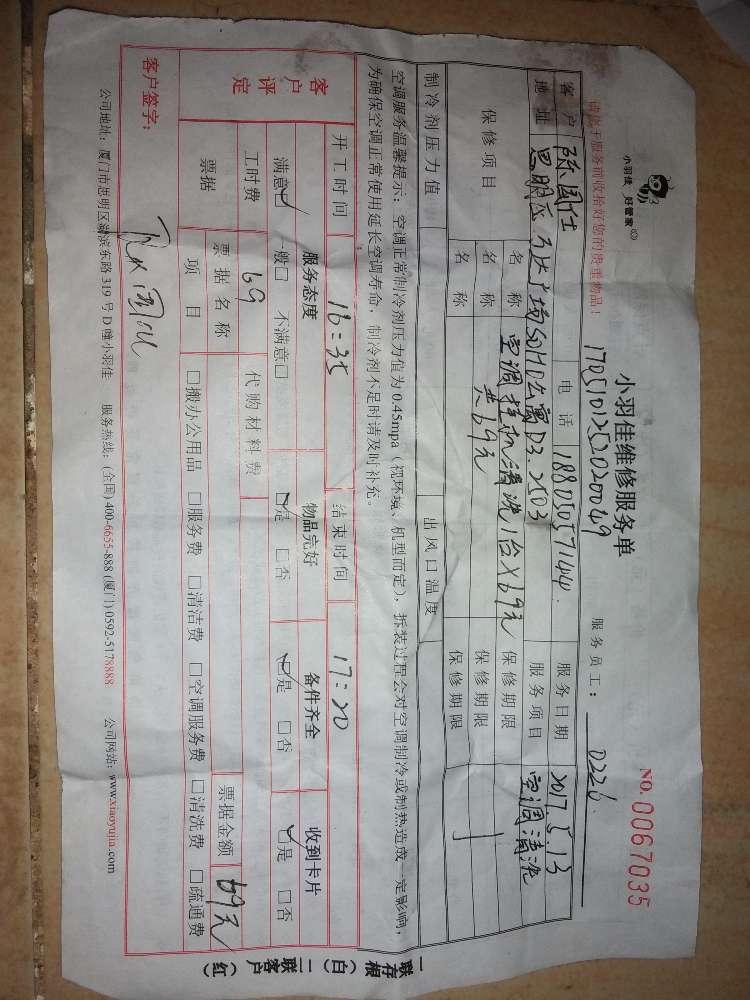 小羽佳 好管家
小羽佳维修服务单
NO. 0067035
170510125202049
服务员工: D226
请您于服务前收拾好您的贵重物品!
客户 陈国仕 电话 18805057144 服务日期 2017.5.13
地址 思明区万达广场SOHO公寓D3.2503 服务项目 空调清洗
保修项目 名称 空调挂机清洗1台×69元 保修期限
名称 共69元 保修期限
名称 保修期限
制冷剂压力值 出风口温度
空调服务温馨提示: 空调正常制冷剂压力值为0.45mpa (视环境、机型而定), 拆装过程会对空调制冷或制热造成一定影响,
为确保空调正常使用延长空调寿命, 制冷剂不足时请及时补充。
客户评定 开工时间 16:35 结束时间 17:20
服务态度 物品完好 备件齐全 收到卡片
满意☑ 一般□ 不满意□ ☑是 □否 ☑是 □否 ☑是 □否
工时费 69 代购材料费
票据 票据名称 票据金额 69元
项目 □搬办公用品 □服务费 □清洁费 □空调服务费 □清洗费 □疏通费
客户签字:
一联存根(白) 二联客户(红)
公司地址: 厦门市思明区湖滨东路319号D幢小羽佳 服务热线: (全国) 400-6655-888 (厦门) 0592-5178888 公司网站: www.xiaoyujia.com